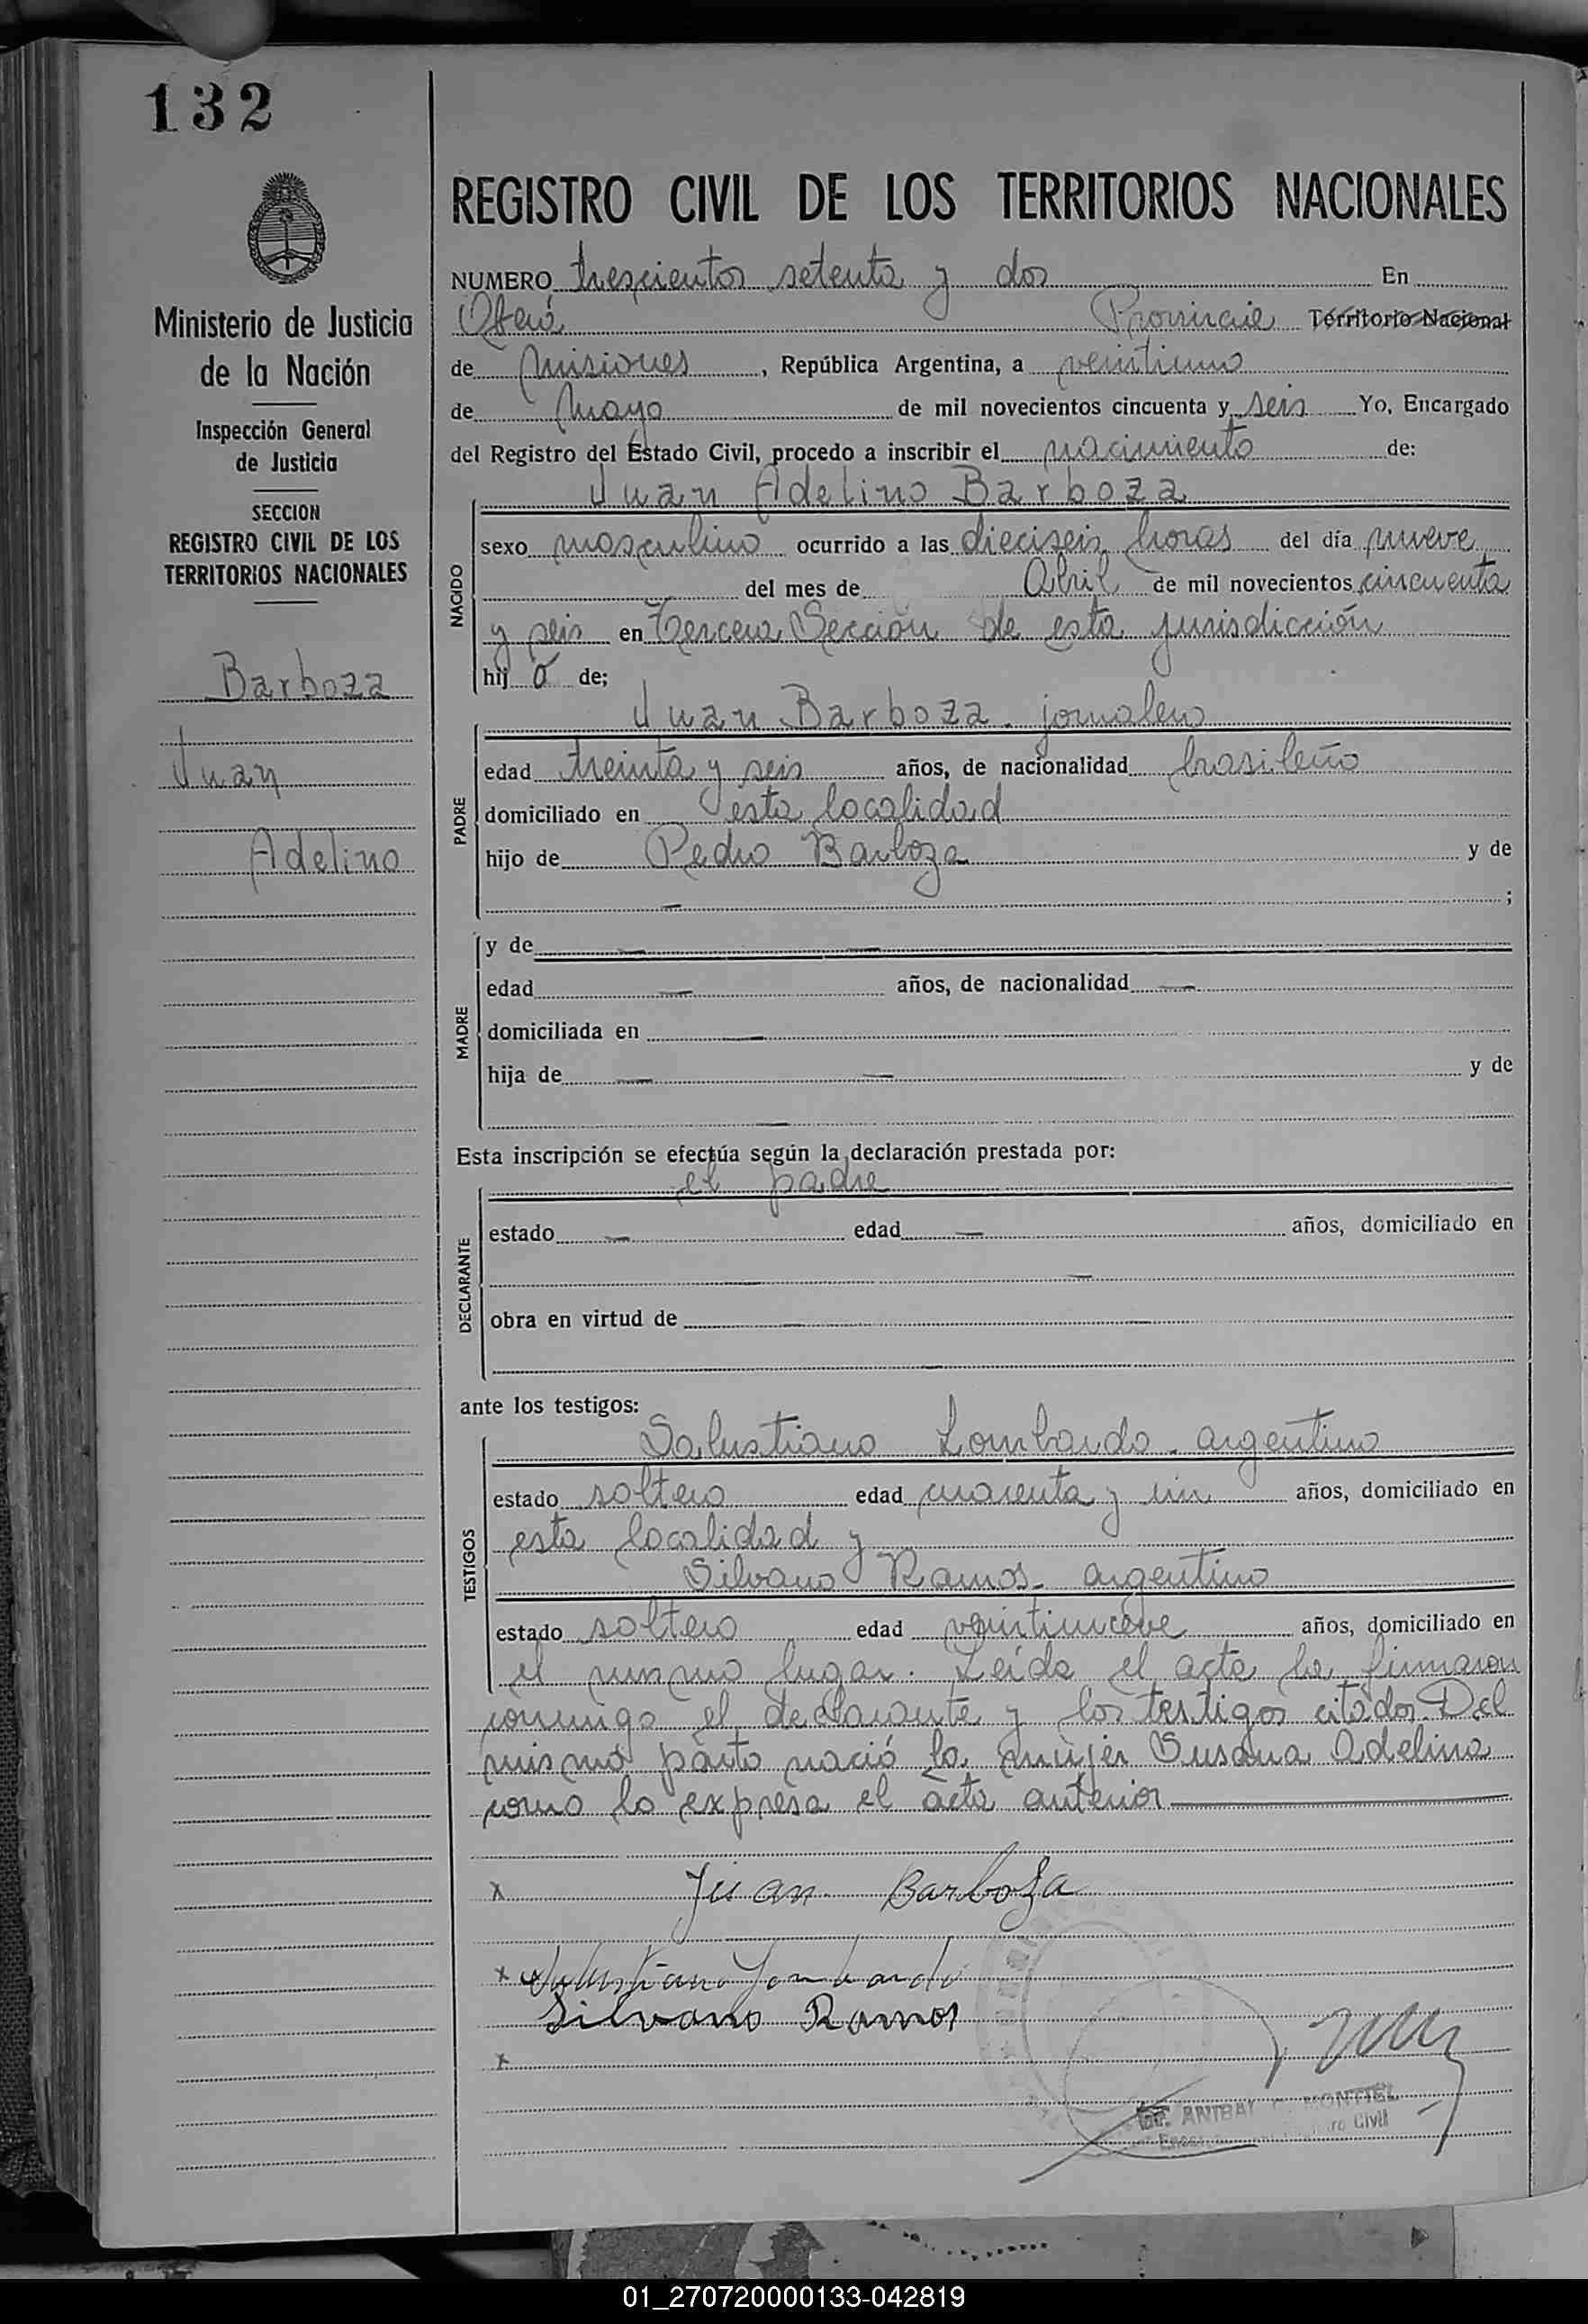 132
REGISTRO CIVIL DE LOS TERRITORIOS NACIONALES
Ministerio de Justicia
de la Nación
Inspección General
de Justicia
SECCION
REGISTRO CIVIL DE LOS
TERRITORIOS NACIONALES
Barboza
Juan
Adelino
NUMERO trescientos setenta y dos En
Oberá Provincia Territorio Nacional
de Misiones, República Argentina, a veintiuno
de Mayo de mil novecientos cincuenta y seis Yo, Encargado
del Registro del Estado Civil, procedo a inscribir el nacimiento de:
Juan Adelino Barboza
NACIDO
sexo masculino ocurrido a las dieciseis horas del día nueve
del mes de Abril de mil novecientos cincuenta
y seis en Tercera Sección de esta jurisdicción
hijo de;
Juan Barboza. jornalero
PADRE
edad treinta y seis años, de nacionalidad brasileño
domiciliado en esta localidad
hijo de Pedro Barboza y de
— ;
MADRE
y de — —
edad — años, de nacionalidad —
domiciliada en —
hija de — — y de
—
Esta inscripción se efectúa según la declaración prestada por:
el padre
DECLARANTE
estado — edad — años, domiciliado en
— —
obra en virtud de — —
—
ante los testigos:
Salustiano Lombardo. argentino
TESTIGOS
estado soltero edad cuarenta y un años, domiciliado en
esta localidad y
Silvano Ramos. argentino
estado soltero edad veintinueve años, domiciliado en
el mismo lugar. Leída el acta la firmaron
conmigo el declarante y los testigos citados. Del
mismo parto nació la mujer Susana Adelina
como lo expresa el acta anterior —
x Juan Barboza
x Salustiano Lombardo
Silvano Ramos
x
ANIBAL MONTIEL
Civil
01_270720000133-042819